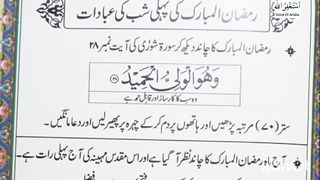 اَسْتَغْفِرُ اللّٰه
رمضان المبارک کی پہلی شب کی عبادات
رمضان المبارک کا چاند دیکھ کر سورۃ شوریٰ کی آیت نمبر ۲۸
وَهُوَ الْوَلِيُّ الْحَمِيْدُ
وہ سب کا کارساز اور قابل حمد ہے
ستر (۷۰) مرتبہ پڑھیں اور ہاتھوں پر دم کرکے چہرہ پر پھیر لیں اور دعا مانگیں۔
آج ماہ رمضان المبارک کا چاند نظر آگیا ہے اور اس مقدس مہینہ کی آج پہلی رات ہے۔